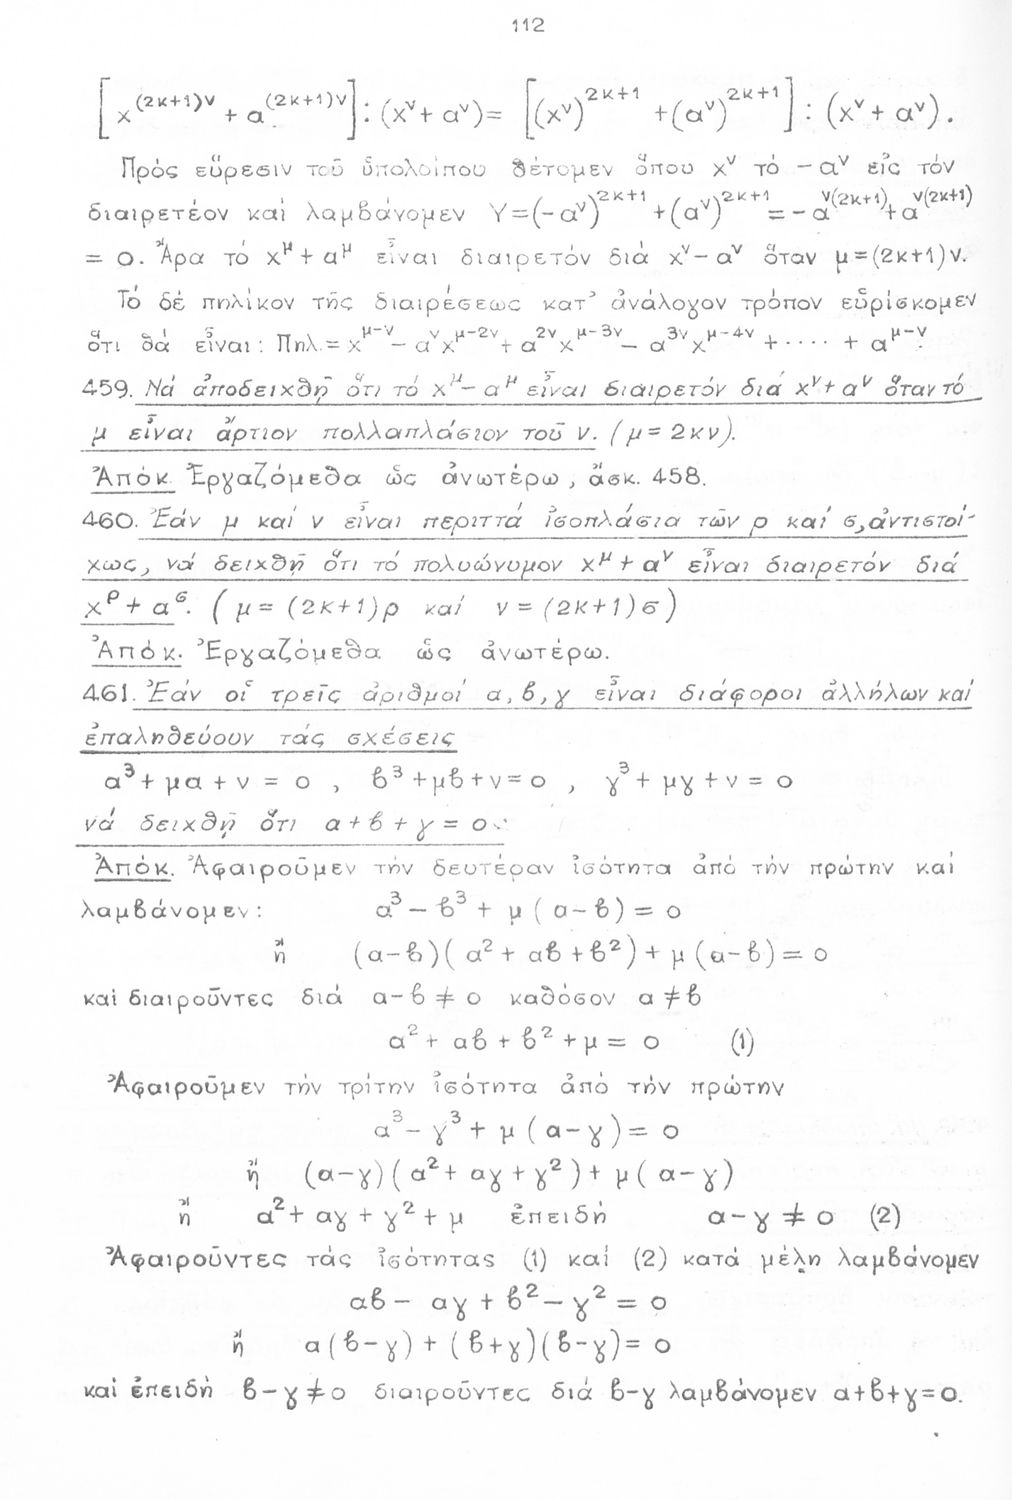 112
[x^(2κ+1)ν + α^(2κ+1)ν] : (x^ν + α^ν) = [(x^ν)^2κ+1 + (α^ν)^2κ+1] : (x^ν + α^ν).
Πρός εὕρεσιν τοῦ ὑπολοίπου θέτομεν ὅπου x^ν τό −α^ν εἰς τόν
διαιρετέον καί λαμβάνομεν Υ=(−α^ν)^2κ+1 + (α^ν)^2κ+1 = −α^ν(2κ+1) + α^ν(2κ+1)
= 0. Ἄρα τό x^μ + α^μ εἶναι διαιρετόν διά x^ν − α^ν ὅταν μ=(2κ+1)ν.
Τό δέ πηλίκον τῆς διαιρέσεως κατ' ἀνάλογον τρόπον εὑρίσκομεν
ὅτι θά εἶναι: Πηλ.= x^μ−ν − α^ν x^μ−2ν + α^2ν x^μ−3ν − α^3ν x^μ−4ν + ···· + α^μ−ν.
459. Νά ἀποδειχθῇ ὅτι τό x^μ − α^μ εἶναι διαιρετόν διά x^ν + α^ν ὅταν τό
μ εἶναι ἄρτιον πολλαπλάσιον τοῦ ν. (μ = 2κν).
Ἀπόκ. Ἐργαζόμεθα ὡς ἀνωτέρω, ἄσκ. 458.
460. Ἐάν μ καί ν εἶναι περιττά ἰσοπλάσια τῶν ρ καί σ, ἀντιστοί-
χως, νά δειχθῇ ὅτι τό πολυώνυμον x^μ + α^ν εἶναι διαιρετόν διά
x^ρ + α^σ. (μ = (2κ+1)ρ καί ν = (2κ+1)σ)
Ἀπόκ. Ἐργαζόμεθα ὡς ἀνωτέρω.
461. Ἐάν οἱ τρεῖς ἀριθμοί α, β, γ εἶναι διάφοροι ἀλλήλων καί
ἐπαληθεύουν τάς σχέσεις
α³ + μα + ν = 0 , β³ + μβ + ν = 0 , γ³ + μγ + ν = 0
νά δειχθῇ ὅτι α + β + γ = 0.
Ἀπόκ. Ἀφαιροῦμεν τήν δευτέραν ἰσότητα ἀπό τήν πρώτην καί
λαμβάνομεν: α³ − β³ + μ(α−β) = 0
ἤ (α−β)(α² + αβ + β²) + μ(α−β) = 0
καί διαιροῦντες διά α−β ≠ 0 καθόσον α ≠ β
α² + αβ + β² + μ = 0 (1)
Ἀφαιροῦμεν τήν τρίτην ἰσότητα ἀπό τήν πρώτην
α³ − γ³ + μ(α−γ) = 0
ἤ (α−γ)(α² + αγ + γ²) + μ(α−γ)
ἤ α² + αγ + γ² + μ ἐπειδή α−γ ≠ 0 (2)
Ἀφαιροῦντες τάς ἰσότητας (1) καί (2) κατά μέλη λαμβάνομεν
αβ − αγ + β² − γ² = 0
ἤ α(β−γ) + (β+γ)(β−γ) = 0
καί ἐπειδή β−γ ≠ 0 διαιροῦντες διά β−γ λαμβάνομεν α+β+γ=0.